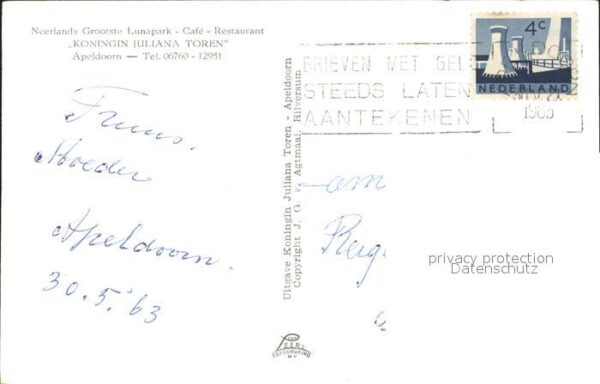 Neerlands Grootste Lunapark - Café - Restaurant
„KONINGIN JULIANA TOREN"
Apeldoorn — Tel. 06760 - 12951
4c
NEDERLAND
BRIEVEN MET GELD
STEEDS LATEN
AANTEKENEN
Truus.
Moeder
Apeldoorn.
30.5.'63
Uitgave Koningin Juliana Toren - Apeldoorn
Copyright J. G. v. Agtmaal, Hilversum
privacy protection
Datenschutz